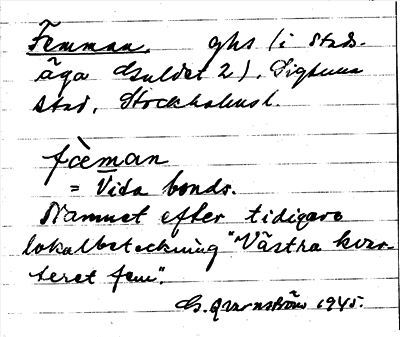 Femman. ghs (i Stads-
äga Guldet 2), Sigtuna
stad, Stockholmsl.
fa᷆eman
= Vida bonds.
Namnet efter tidigare
lokalbeteckning "Västra kvar-
teret fem".
G. Qvarnström 1945.